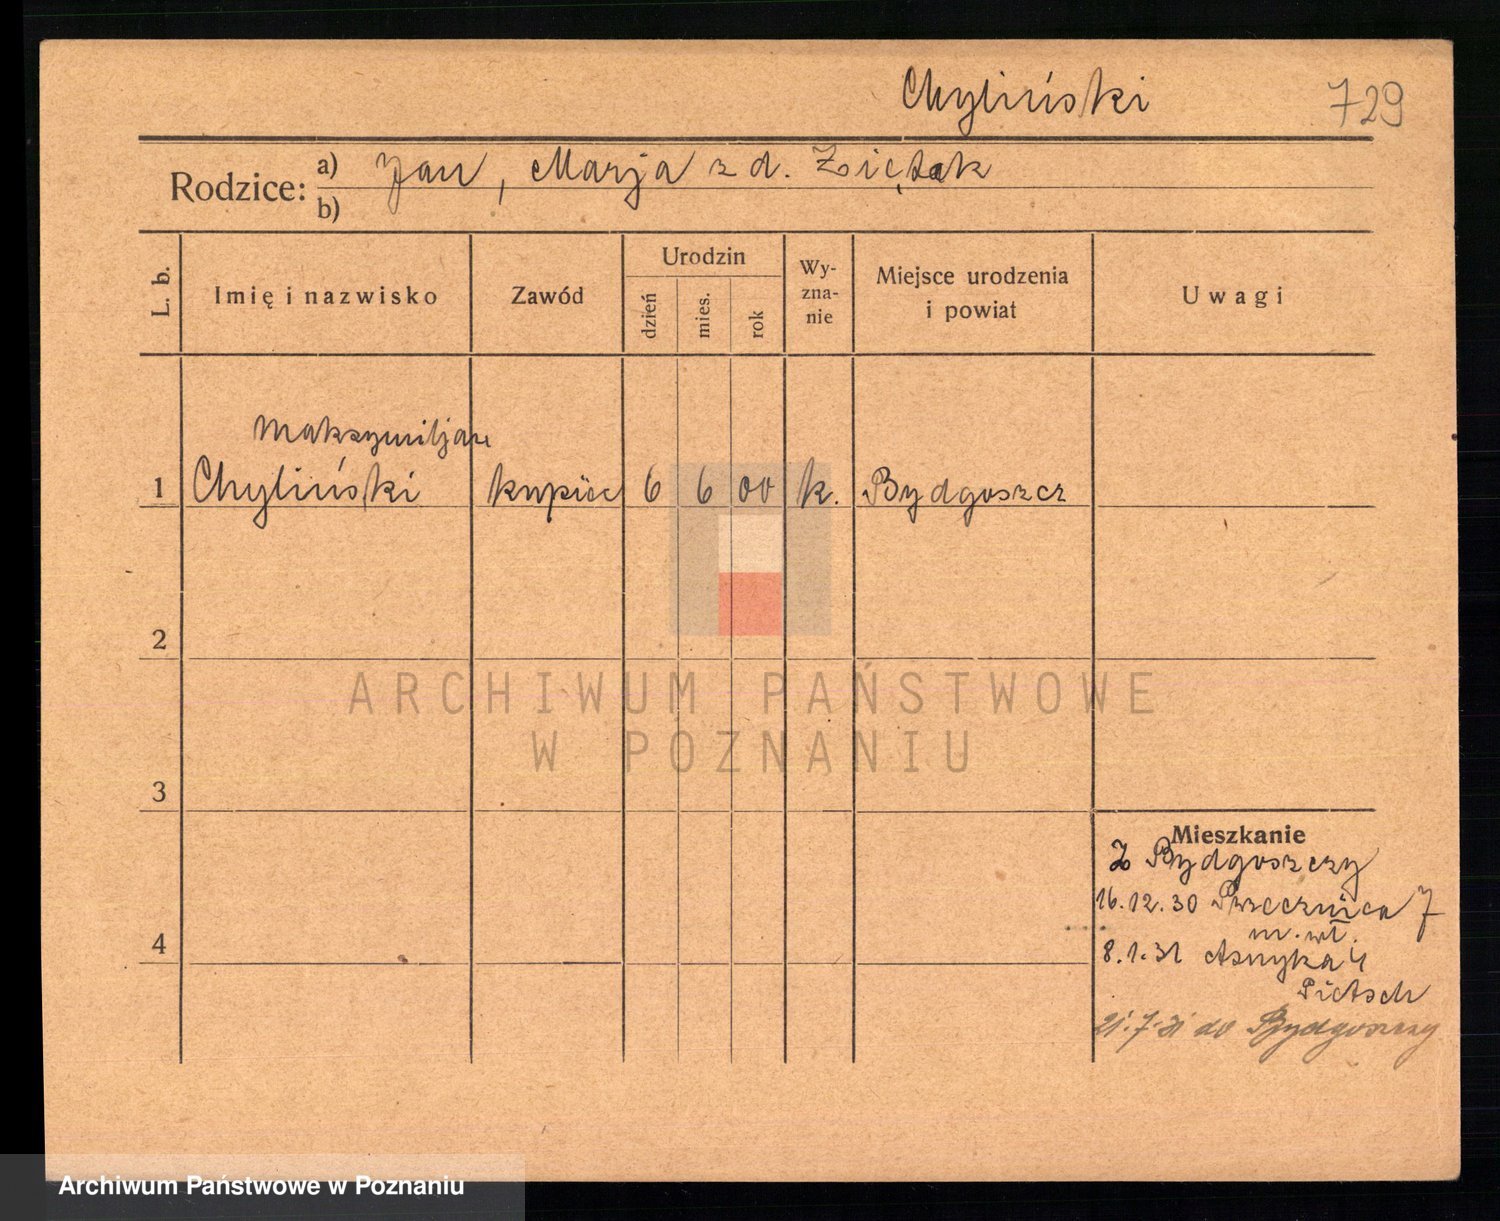 Chyliński 729
Rodzice: a) Jan, Marja z d. Ziętak
b)
L. b. Imię i nazwisko Zawód Urodzin dzień mies. rok Wy-zna-nie Miejsce urodzenia i powiat Uwagi
Maksymiljan
1 Chyliński kupiec 6 6 00 k. Bydgoszcz
2
ARCHIWUM PAŃSTWOWE
W POZNANIU
3
Mieszkanie
Z Bydgoszczy
16.12.30 Przecznica 7
m. wł.
4
8.1.31 Asnyka 4
Pietsch
21.7.31 do Bydgoszczy
Archiwum Państwowe w Poznaniu